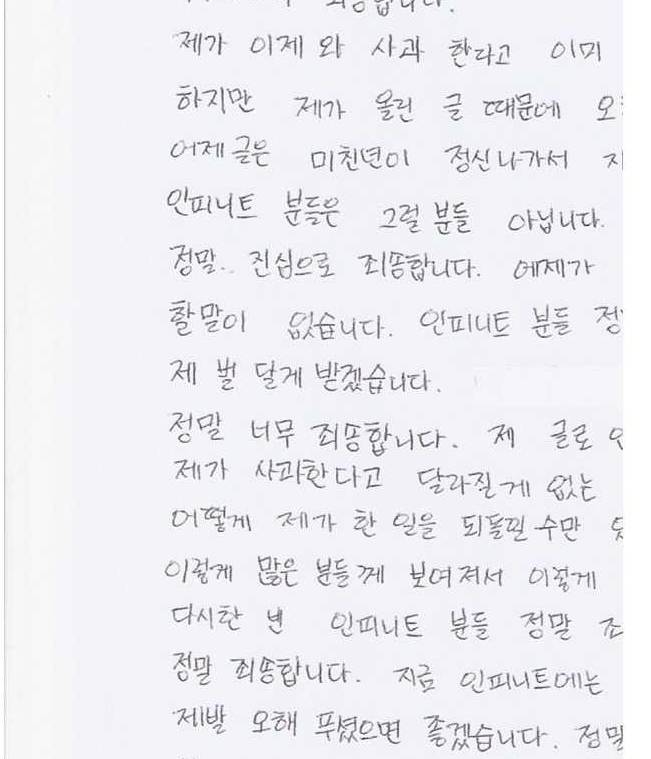 죄송합니다.
제가 이제 와 사과 한다고 이미
하지만 제가 올린 글 때문에
어제글은 미친년이 정신나가서
인피니트 분들은 그럴분들 아닙니다.
정말.. 진심으로 죄송합니다. 어제가
할말이 없습니다. 인피니트 분들
제 벌 달게 받겠습니다.
정말 너무 죄송합니다. 제 글로
제가 사과한다고 달라질게 없는
어떻게 제가 한 일을 되돌릴 수만
이렇게 많은 분들께 보여져서 이렇게
다시한 번 인피니트 분들 정말
정말 죄송합니다. 지금 인피니트에는
제발 오해 푸셨으면 좋겠습니다. 정말